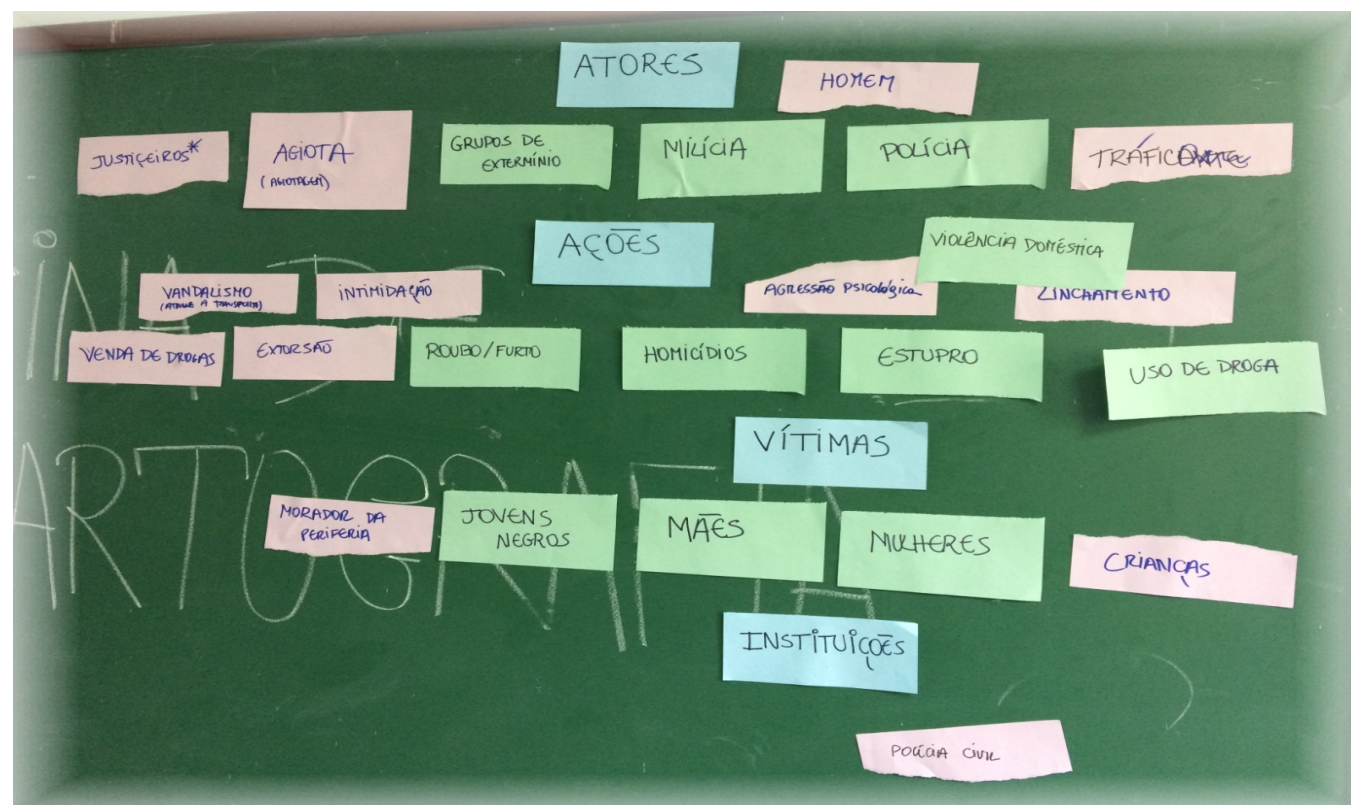 ATORES
HOMEM
JUSTICEIROS*
AGIOTA
(AGIOTAGEM)
GRUPOS DE
EXTERMÍNIO
MILÍCIA
POLÍCIA
TRÁFICO
AÇÕES
VIOLÊNCIA DOMÉSTICA
VANDALISMO
(ATAQUE A TRANSPORTE)
INTIMIDAÇÃO
AGRESSÃO PSICOLÓGICA
LINCHAMENTO
VENDA DE DROGAS
EXTORSÃO
ROUBO/FURTO
HOMICÍDIOS
ESTUPRO
USO DE DROGA
VÍTIMAS
MORADOR DA
PERIFERIA
JOVENS
NEGROS
MÃES
MULHERES
CRIANÇAS
INSTITUIÇÕES
POLÍCIA CIVIL
INA DE
ARTOGRAFIA